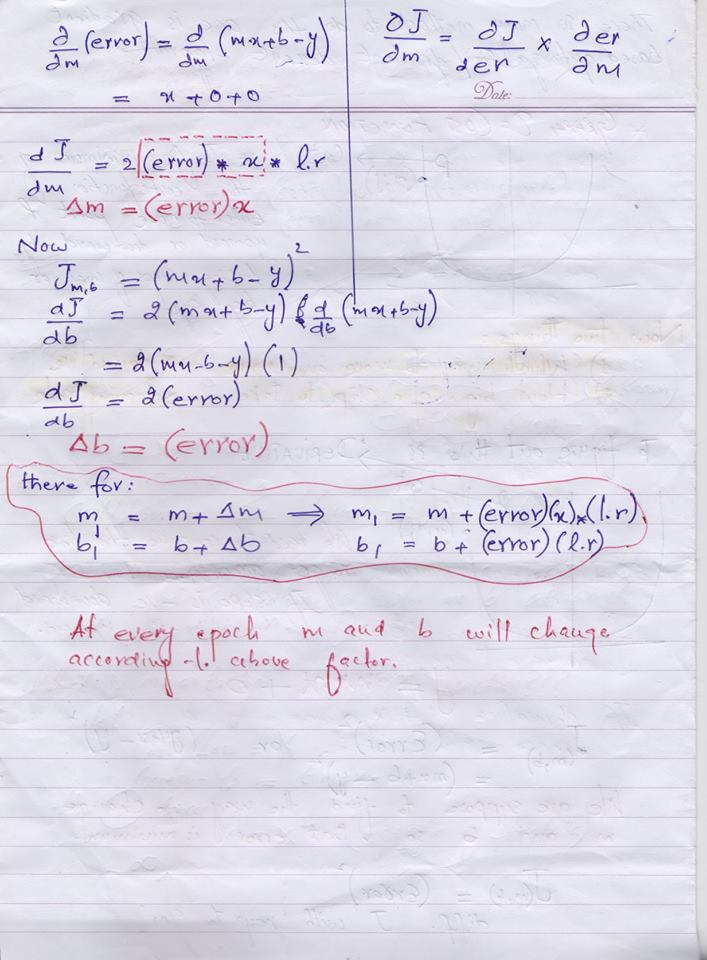 ∂/∂m (error) = d/dm (mx+b-y)
= x + 0 + 0
∂J/∂m = ∂J/∂er × ∂er/∂m
Date:
dJ/dm = 2 (error) * x * l.r
Δm = (error)x
Now
J m,b = (mx+b-y)²
dJ/db = 2(mx+b-y) d/db (mx+b-y)
= 2(mx-b-y) (1)
dJ/db = 2(error)
Δb = (error)
there for:
m₁ = m + Δm ⟹ m₁ = m + (error)(x) * (l.r)
b₁ = b + Δb b₁ = b + (error)(l.r)
At every epoch m and b will change
according above factor.